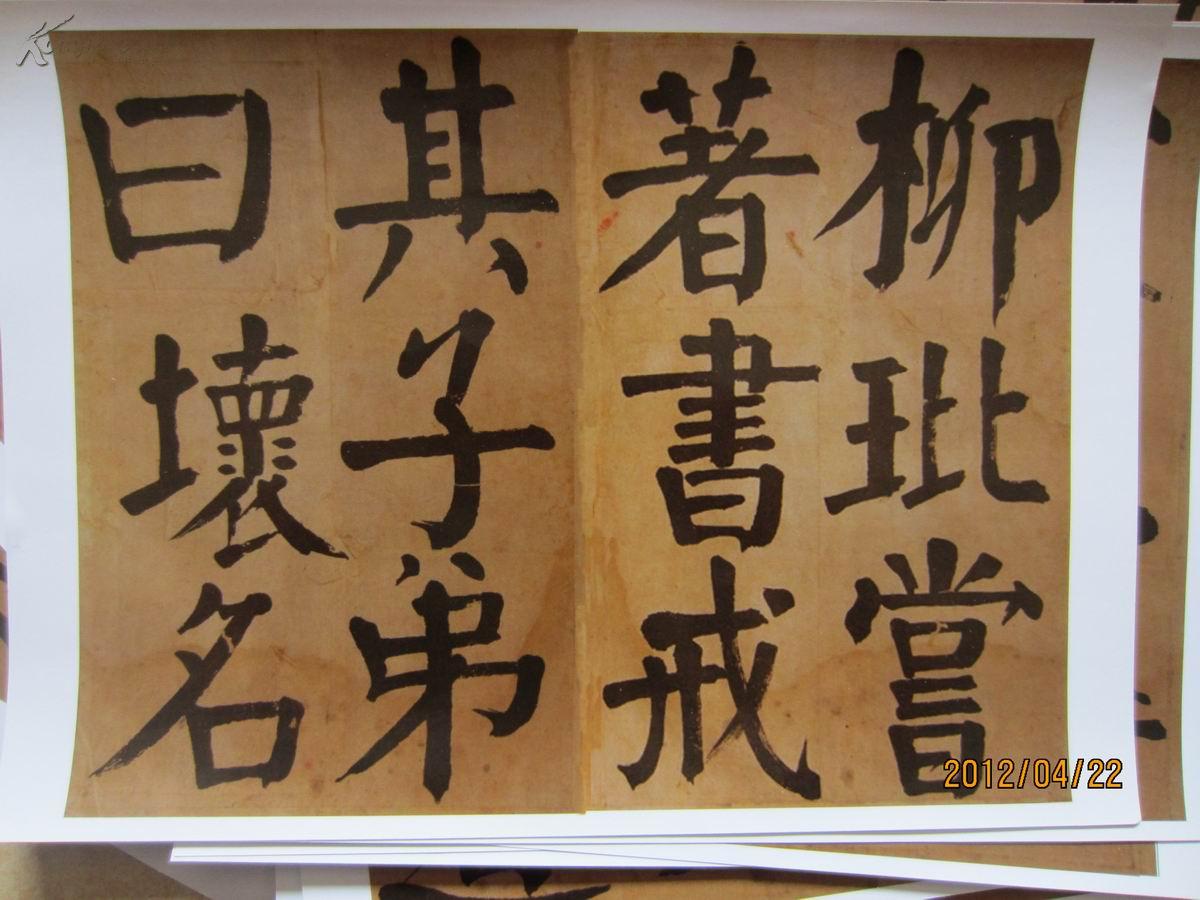 柳玭嘗
著書戒
其子弟
曰壞名
2012/04/22